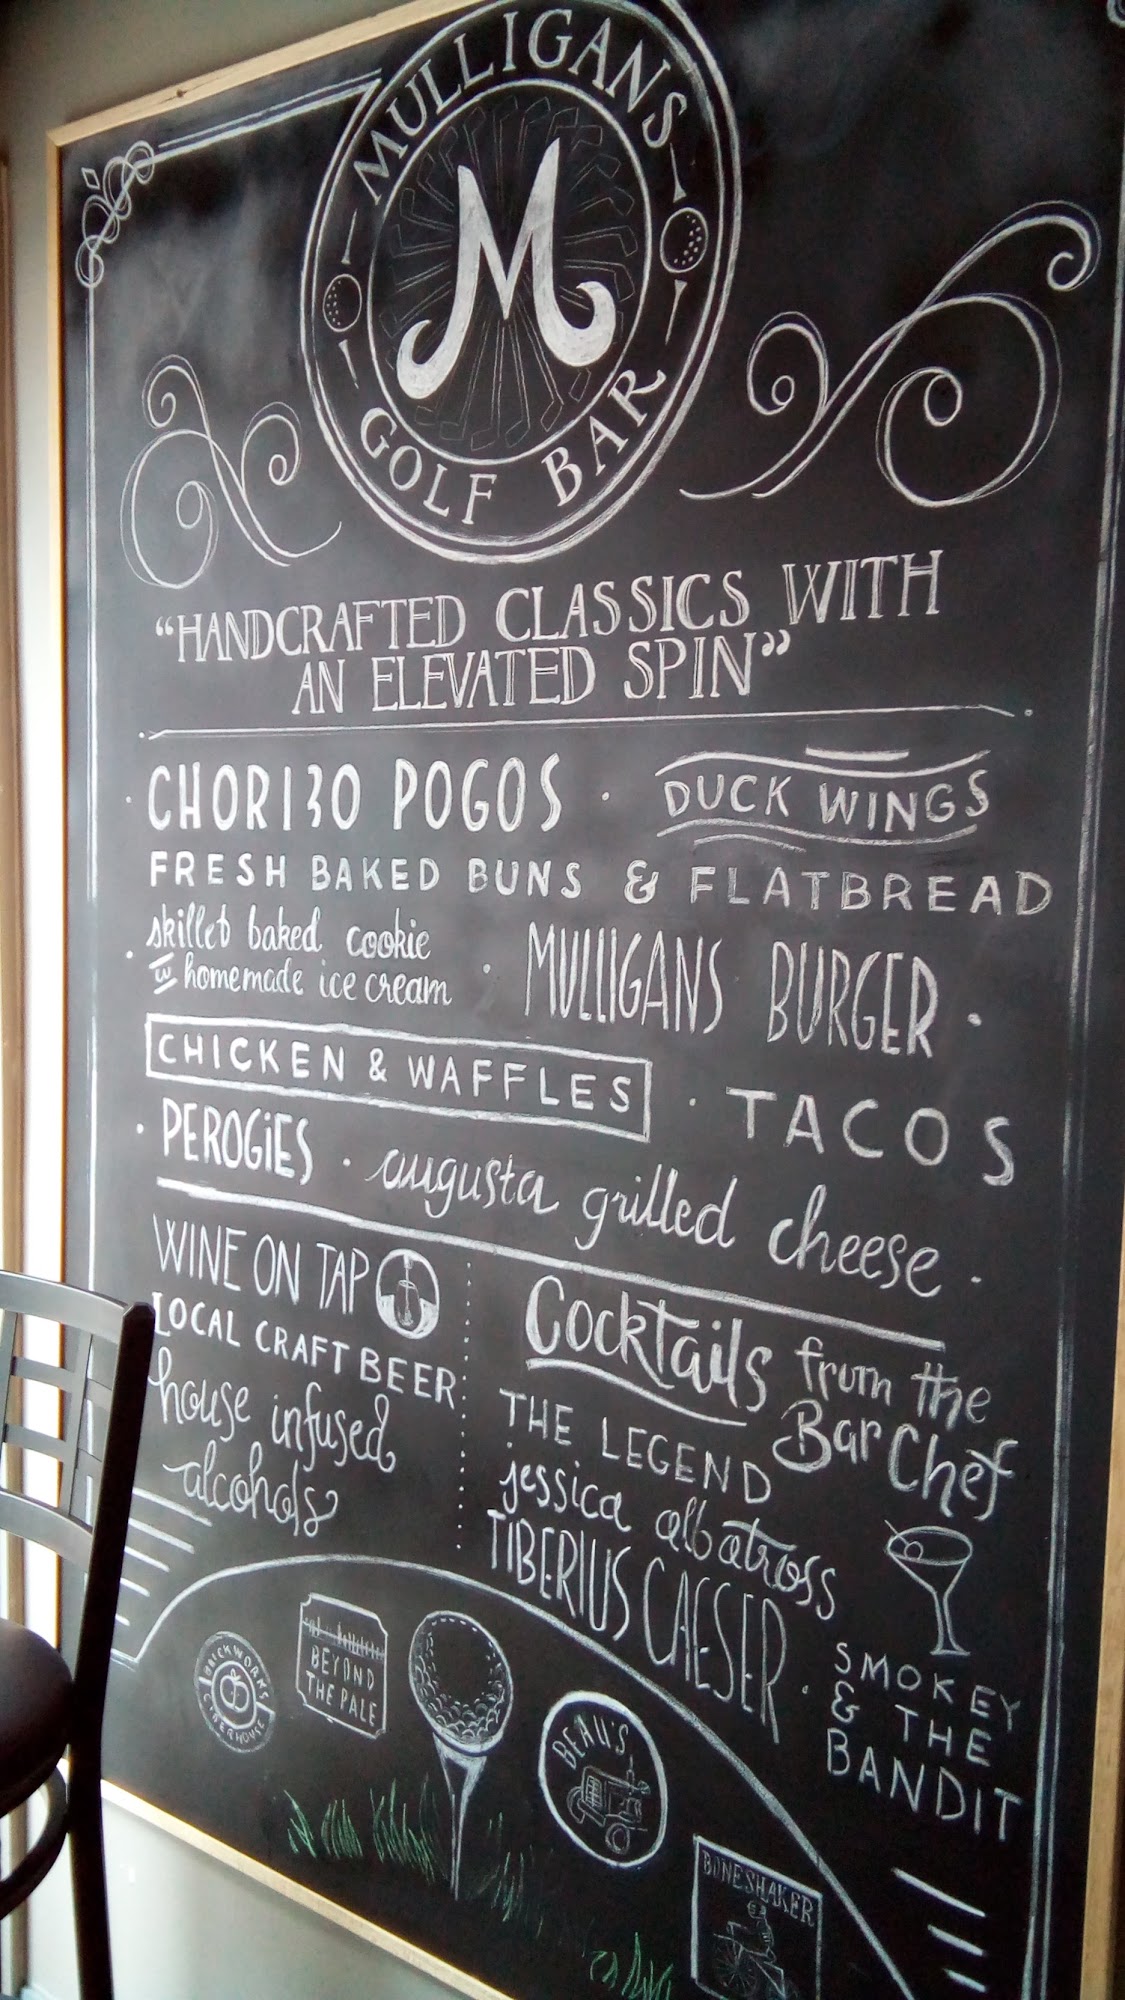 MULLIGANS
M
GOLF BAR
"HANDCRAFTED CLASSICS WITH
AN ELEVATED SPIN"
· CHORIZO POGOS · DUCK WINGS
FRESH BAKED BUNS & FLATBREAD
skillet baked cookie
w/ homemade ice cream · MULLIGANS BURGER ·
CHICKEN & WAFFLES · TACOS
· PEROGIES · augusta grilled cheese ·
WINE ON TAP
LOCAL CRAFT BEER
house infused
alcohols
Cocktails from the
Bar Chef
THE LEGEND
jessica albatross
TIBERIUS CAESER ·
SMOKEY
& THE
BANDIT
BRICKWORKS
CIDERHOUSE
BEYOND
THE PALE
BEAU'S
BONESHAKER